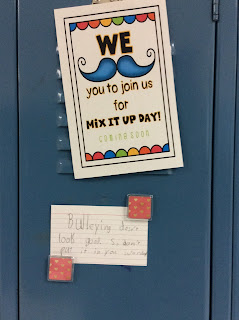 WE
you to join us
for
MiX IT UP DAY!
COMING SOON
Bulleying dosn't
look good So don't
put it in your